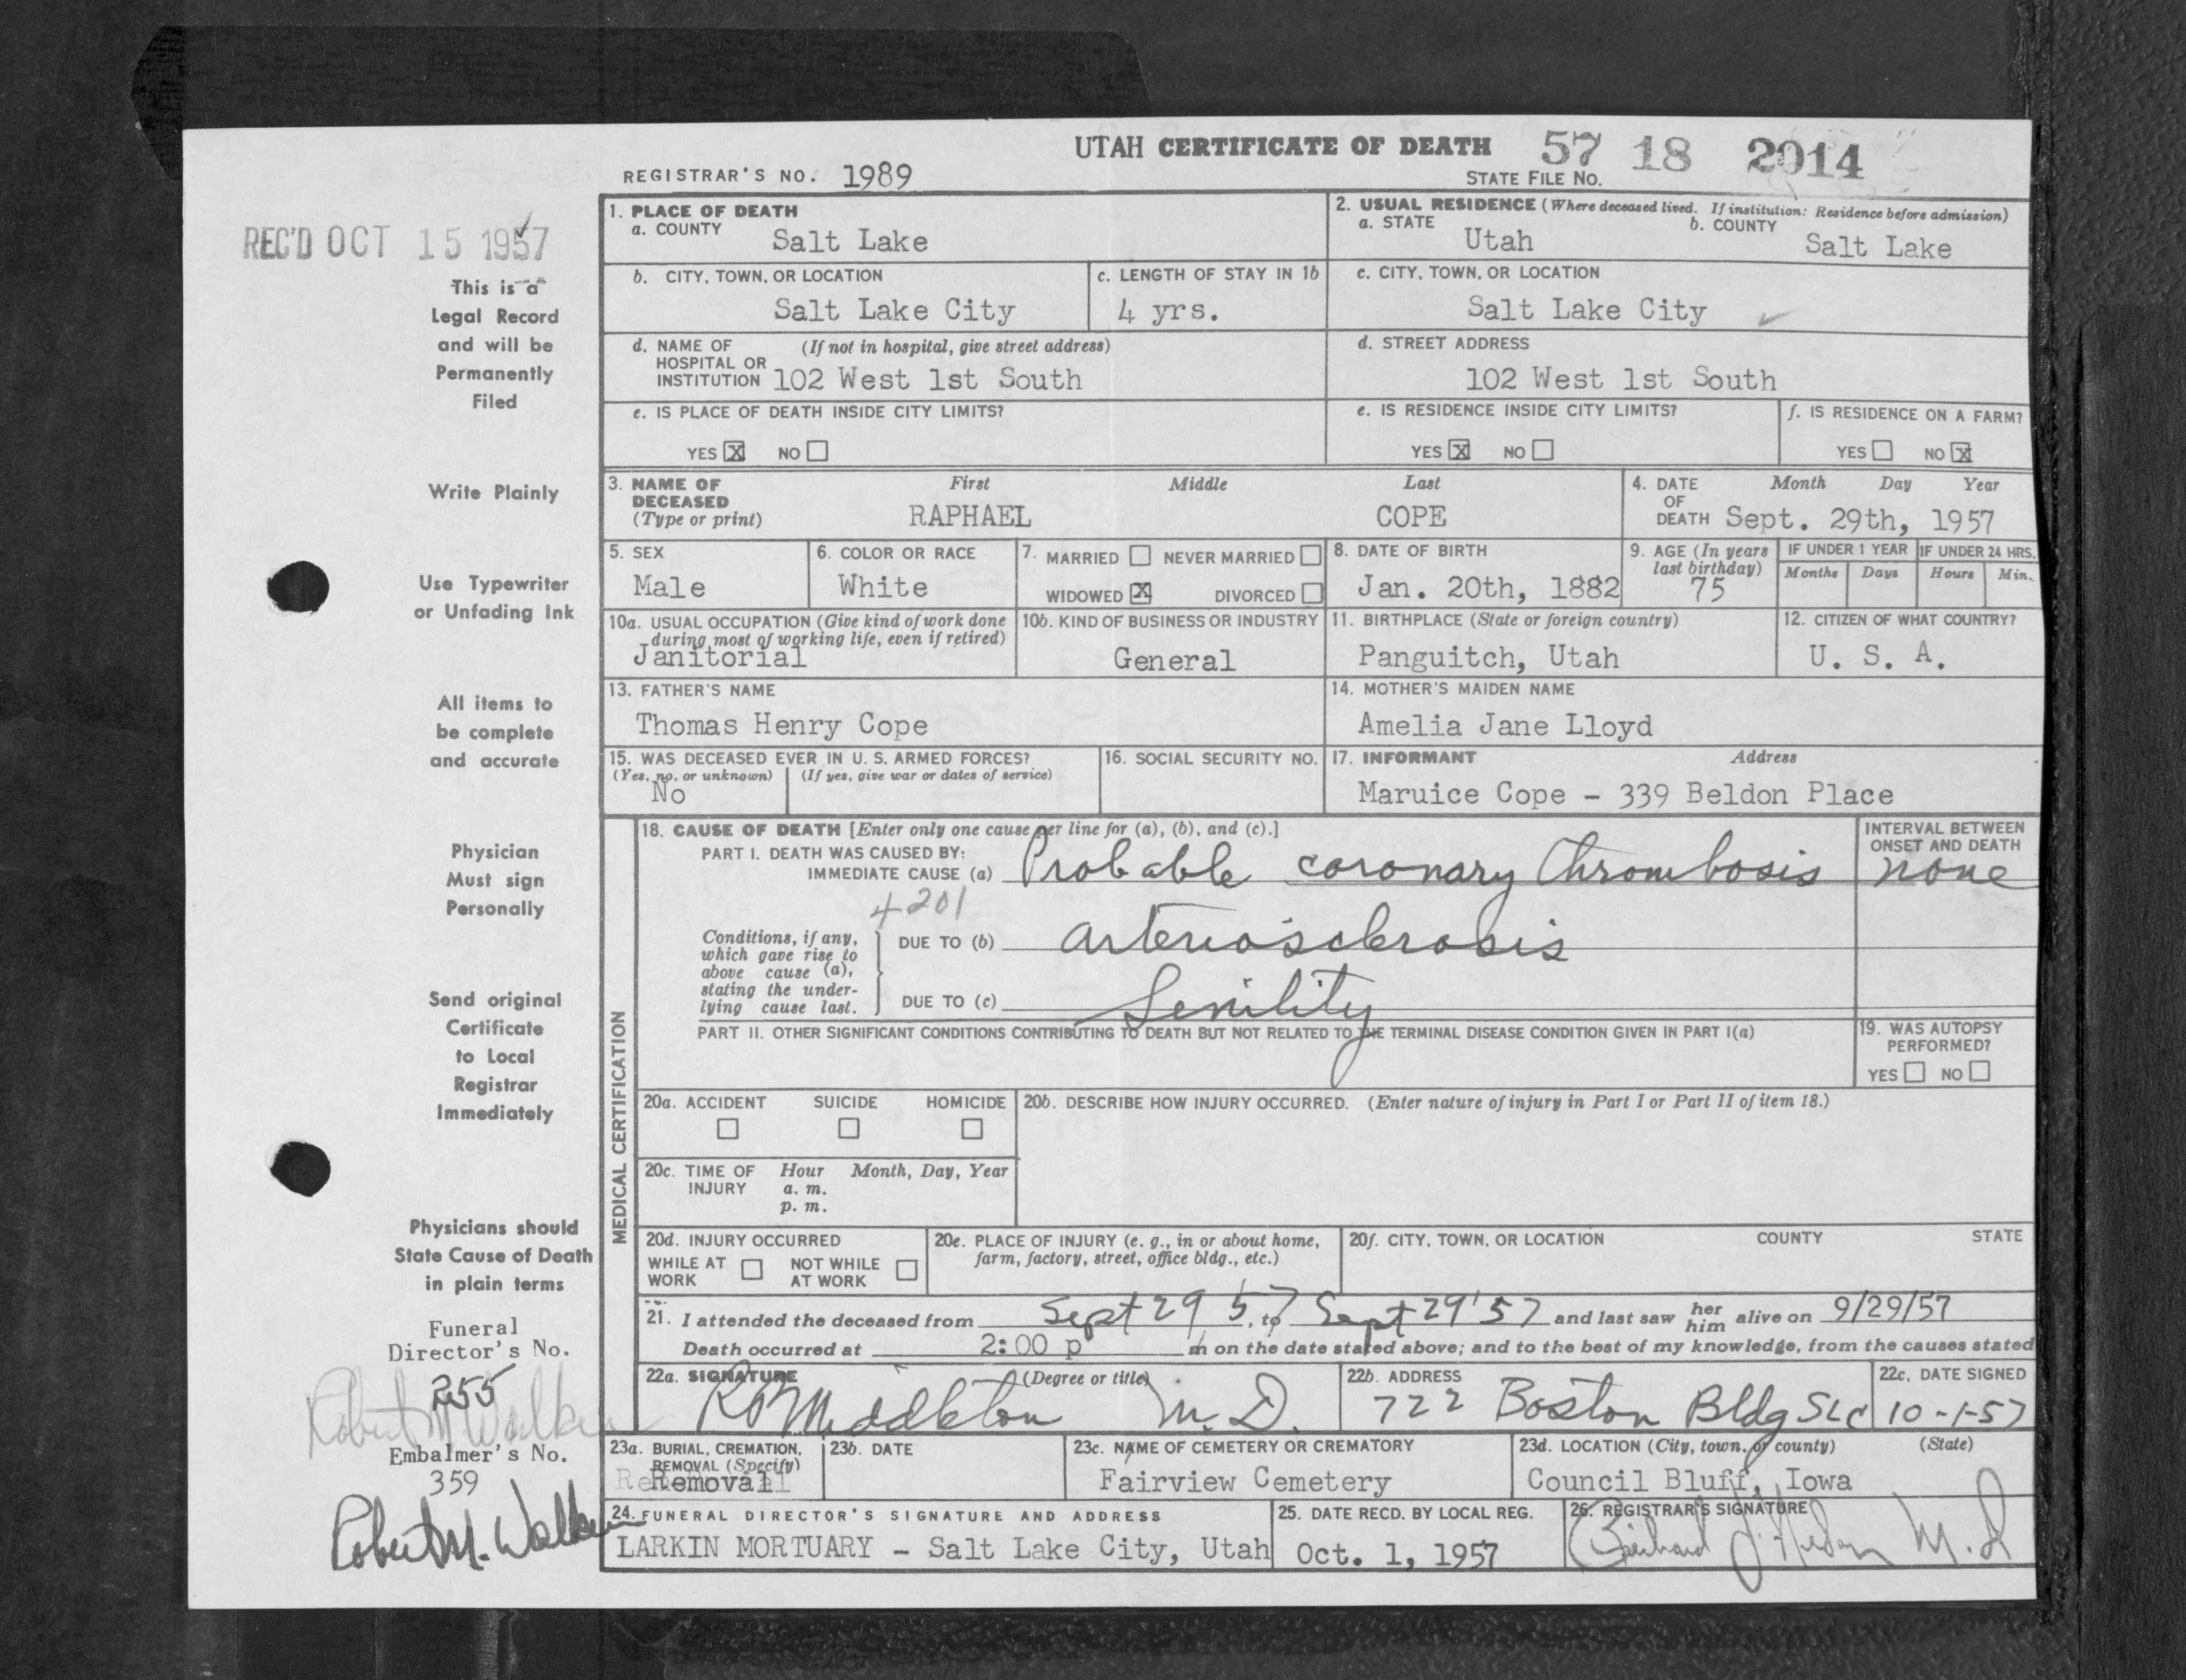 UTAH CERTIFICATE OF DEATH 57 18 2014
REGISTRAR'S NO. 1989 STATE FILE NO.
REC'D OCT 15 1957
This is a
Legal Record
and will be
Permanently
Filed
Write Plainly
Use Typewriter
or Unfading Ink
All items to
be complete
and accurate
Physician
Must sign
Personally
Send original
Certificate
to Local
Registrar
Immediately
Physicians should
State Cause of Death
in plain terms
Funeral
Director's No.
255
Robert M Walker
Embalmer's No.
359
Robert M. Walker
1. PLACE OF DEATH
a. COUNTY Salt Lake
2. USUAL RESIDENCE (Where deceased lived. If institution: Residence before admission)
a. STATE Utah b. COUNTY Salt Lake
b. CITY, TOWN, OR LOCATION Salt Lake City
c. LENGTH OF STAY IN 1b 4 yrs.
c. CITY, TOWN, OR LOCATION Salt Lake City
d. NAME OF (If not in hospital, give street address)
HOSPITAL OR
INSTITUTION 102 West 1st South
d. STREET ADDRESS
102 West 1st South
e. IS PLACE OF DEATH INSIDE CITY LIMITS?
YES X NO
e. IS RESIDENCE INSIDE CITY LIMITS?
YES X NO
f. IS RESIDENCE ON A FARM?
YES NO X
3. NAME OF DECEASED (Type or print)
First Middle Last
RAPHAEL COPE
4. DATE OF DEATH Month Day Year
Sept. 29th, 1957
5. SEX
Male
6. COLOR OR RACE
White
7. MARRIED NEVER MARRIED
WIDOWED X DIVORCED
8. DATE OF BIRTH
Jan. 20th, 1882
9. AGE (In years last birthday)
75
IF UNDER 1 YEAR
Months Days
IF UNDER 24 HRS.
Hours Min.
10a. USUAL OCCUPATION (Give kind of work done
during most of working life, even if retired)
Janitorial
10b. KIND OF BUSINESS OR INDUSTRY
General
11. BIRTHPLACE (State or foreign country)
Panguitch, Utah
12. CITIZEN OF WHAT COUNTRY?
U. S. A.
13. FATHER'S NAME
Thomas Henry Cope
14. MOTHER'S MAIDEN NAME
Amelia Jane Lloyd
15. WAS DECEASED EVER IN U. S. ARMED FORCES?
(Yes, no, or unknown) (If yes, give war or dates of service)
No
16. SOCIAL SECURITY NO.
17. INFORMANT Address
Maruice Cope - 339 Beldon Place
MEDICAL CERTIFICATION
18. CAUSE OF DEATH [Enter only one cause per line for (a), (b), and (c).]
PART I. DEATH WAS CAUSED BY:
IMMEDIATE CAUSE (a) Probable coronary Thrombosis
INTERVAL BETWEEN
ONSET AND DEATH
none
4201
Conditions, if any,
which gave rise to
above cause (a),
stating the under-
lying cause last.
DUE TO (b) arteriosclerosis
DUE TO (c) Senility
PART II. OTHER SIGNIFICANT CONDITIONS CONTRIBUTING TO DEATH BUT NOT RELATED TO THE TERMINAL DISEASE CONDITION GIVEN IN PART I(a)
19. WAS AUTOPSY
PERFORMED?
YES NO
20a. ACCIDENT SUICIDE HOMICIDE
20b. DESCRIBE HOW INJURY OCCURRED. (Enter nature of injury in Part I or Part II of item 18.)
20c. TIME OF INJURY Hour Month, Day, Year
a. m.
p. m.
20d. INJURY OCCURRED
WHILE AT WORK NOT WHILE AT WORK
20e. PLACE OF INJURY (e. g., in or about home,
farm, factory, street, office bldg., etc.)
20f. CITY, TOWN, OR LOCATION COUNTY STATE
21. I attended the deceased from Sept 29 57, to Sept 29 '57 and last saw her him alive on 9/29/57
Death occurred at 2:00 p m on the date stated above; and to the best of my knowledge, from the causes stated
22a. SIGNATURE (Degree or title)
Middleton M. D.
22b. ADDRESS
722 Boston Bldg SLC
22c. DATE SIGNED
10-1-57
23a. BURIAL, CREMATION,
REMOVAL (Specify)
Removal
23b. DATE
23c. NAME OF CEMETERY OR CREMATORY
Fairview Cemetery
23d. LOCATION (City, town, or county) (State)
Council Bluff, Iowa
24. FUNERAL DIRECTOR'S SIGNATURE AND ADDRESS
LARKIN MORTUARY - Salt Lake City, Utah
25. DATE RECD. BY LOCAL REG.
Oct. 1, 1957
26. REGISTRAR'S SIGNATURE
M. D